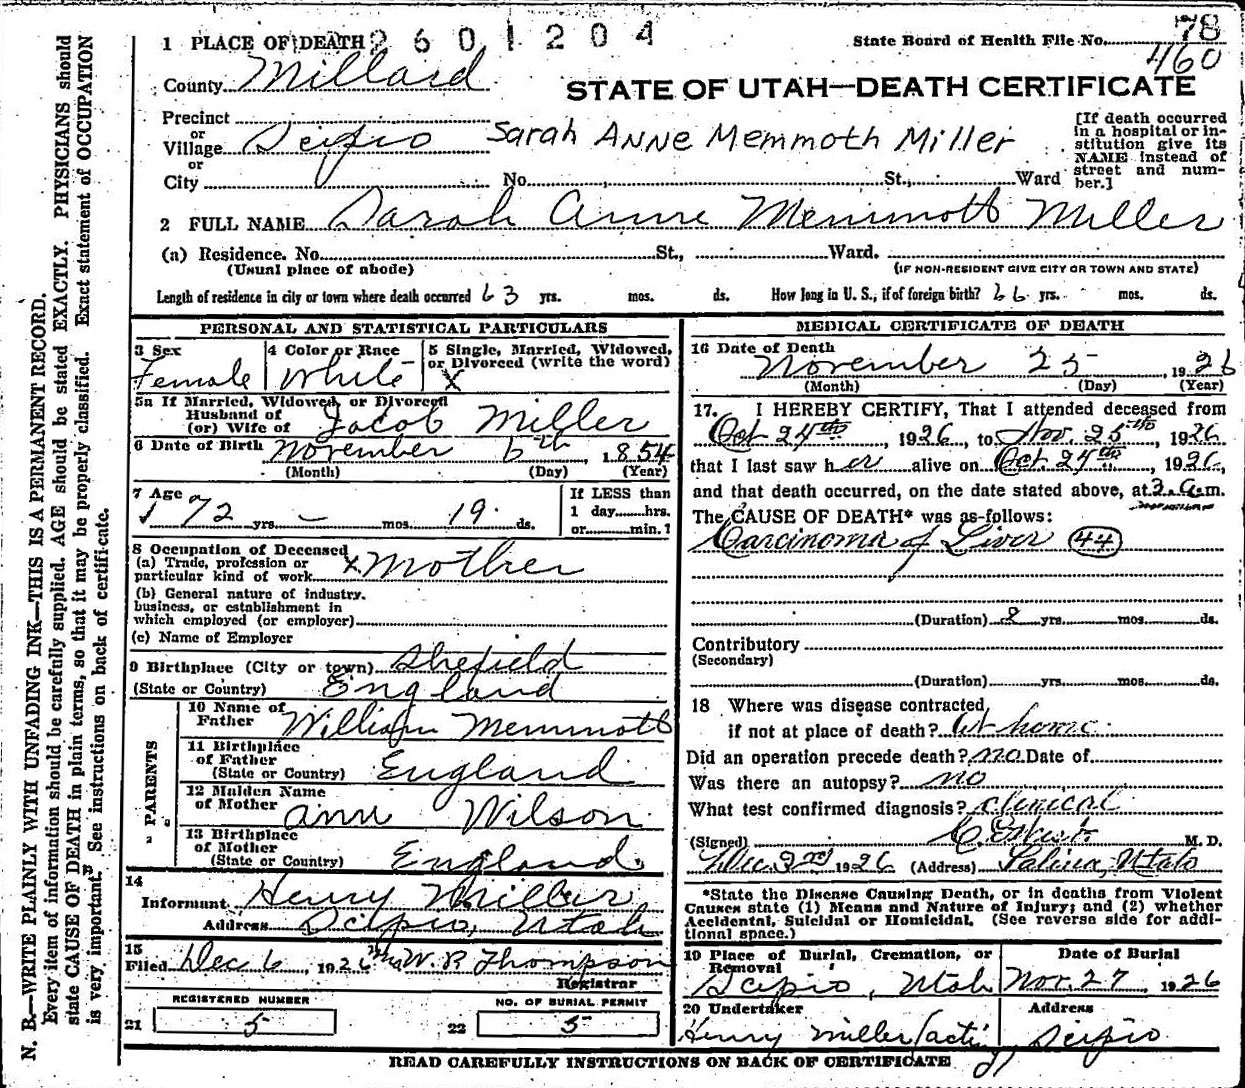 1 PLACE OF DEATH 2601204
State Board of Health File No. 78
460
County Millard
STATE OF UTAH—DEATH CERTIFICATE
Precinct
or
Village Scipio
or
City No. St., Ward
Sarah Anne Memmoth Miller
[If death occurred
in a hospital or in-
stitution give its
NAME instead of
street and num-
ber.]
2 FULL NAME Sarah Anne Memmott Miller
(a) Residence. No. St., Ward.
(Usual place of abode) (IF NON-RESIDENT GIVE CITY OR TOWN AND STATE)
Length of residence in city or town where death occurred 63 yrs. mos. ds. How long in U. S., if of foreign birth? 66 yrs. mos. ds.
PERSONAL AND STATISTICAL PARTICULARS
3 Sex Female
4 Color or Race White
5 Single, Married, Widowed,
or Divorced (write the word)
X
5a If Married, Widowed, or Divorced
Husband of
(or) Wife of Jacob Miller
6 Date of Birth November 6th, 1854
(Month) (Day) (Year)
7 Age 72 yrs. – mos. 19 ds.
If LESS than
1 day....hrs.
or....min.?
8 Occupation of Deceased
(a) Trade, profession or
particular kind of work X Mother
(b) General nature of industry,
business, or establishment in
which employed (or employer)
(c) Name of Employer
9 Birthplace (City or town) Shefield
(State or Country) England
PARENTS
10 Name of
Father William Memmott
11 Birthplace
of Father
(State or Country) England
12 Maiden Name
of Mother Ann Wilson
13 Birthplace
of Mother
(State or Country) England
14
Informant Henry Miller
Address Scipio, Utah
15
Filed Dec 6, 1926 Mrs W.R. Thompson
Registrar
REGISTERED NUMBER
21 5
NO. OF BURIAL PERMIT
22 5
MEDICAL CERTIFICATE OF DEATH
16 Date of Death
November 25, 1926
(Month) (Day) (Year)
17. I HEREBY CERTIFY, That I attended deceased from
Oct 24th, 1926, to Nov. 25th, 1926
that I last saw her alive on Oct. 24th, 1926,
and that death occurred, on the date stated above, at 3.a.m.
The CAUSE OF DEATH* was as follows:
Carcinoma of Liver 44
(Duration) 2 yrs. mos. ds.
Contributory
(Secondary)
(Duration) yrs. mos. ds.
18 Where was disease contracted
if not at place of death? at home.
Did an operation precede death? no. Date of
Was there an autopsy? no
What test confirmed diagnosis? clinical
(Signed) M. D.
Dec 2nd 1926 (Address) Salina, Utah
*State the Disease Causing Death, or in deaths from Violent
Causes state (1) Means and Nature of Injury; and (2) whether
Accidental, Suicidal or Homicidal. (See reverse side for addi-
tional space.)
19 Place of Burial, Cremation, or
Removal
Scipio, Utah
Date of Burial
Nov. 27, 1926
20 Undertaker
Henry Miller (acting)
Address
Scipio
READ CAREFULLY INSTRUCTIONS ON BACK OF CERTIFICATE
N. B.—WRITE PLAINLY WITH UNFADING INK—THIS IS A PERMANENT RECORD.
Every item of information should be carefully supplied. AGE should be stated EXACTLY. PHYSICIANS should
state CAUSE OF DEATH in plain terms, so that it may be properly classified. Exact statement of OCCUPATION
is very important. See instructions on back of certificate.